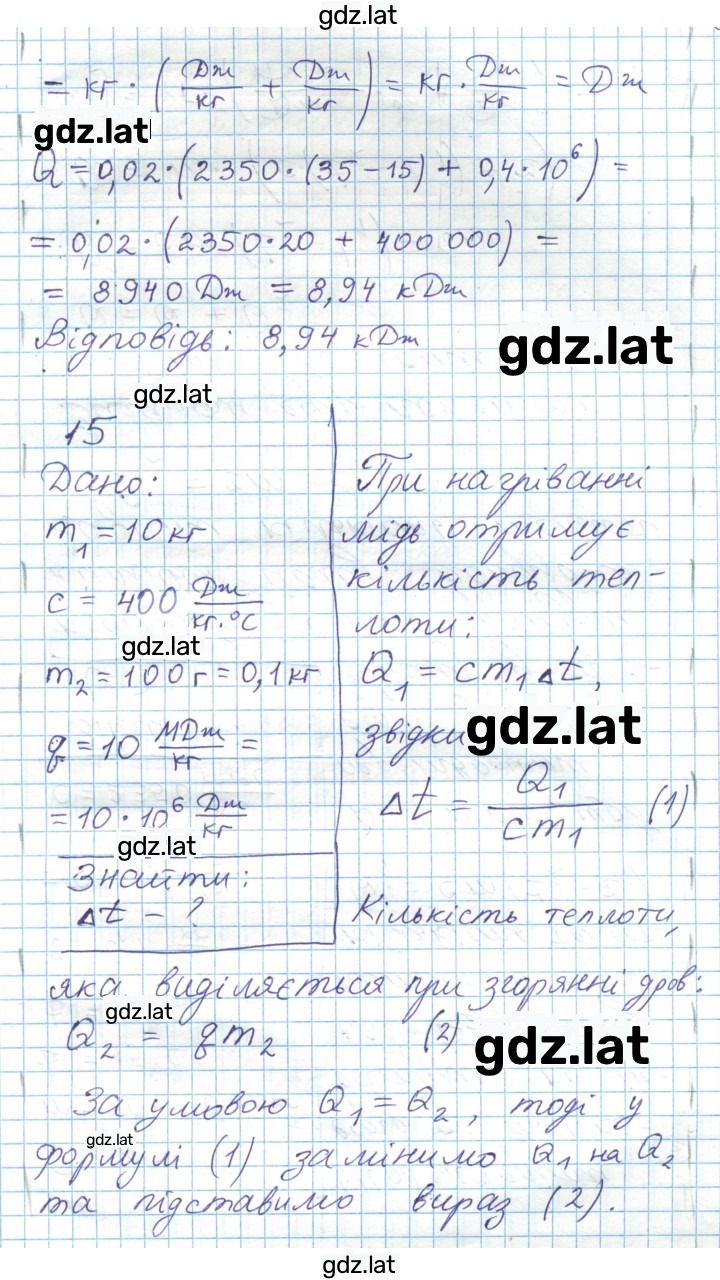 gdz.lat
= кг · (Дж/кг + Дж/кг) = кг · Дж/кг = Дж
gdz.lat
Q = 0,02·(2350·(35-15) + 0,4·10⁶) =
= 0,02·(2350·20 + 400 000) =
= 8940 Дж = 8,94 кДж
Відповідь: 8,94 кДж
gdz.lat
gdz.lat
15
Дано:
m₁ = 10 кг
c = 400 Дж/кг·°C
gdz.lat
m₂ = 100 г = 0,1 кг
q = 10 МДж/кг =
= 10·10⁶ Дж/кг
gdz.lat
Знайти:
Δt - ?
При нагріванні
мідь отримує
кількість теп-
лоти:
Q₁ = cm₁Δt,
звідки
gdz.lat
Δt = Q₁/cm₁ (1)
Кількість теплоти,
яка виділяється при згорянні дров:
gdz.lat
Q₂ = qm₂ (2)
gdz.lat
За умовою Q₁ = Q₂, тоді у
gdz.lat
формулі (1) замінимо Q₁ на Q₂
та підставимо вираз (2).
gdz.lat